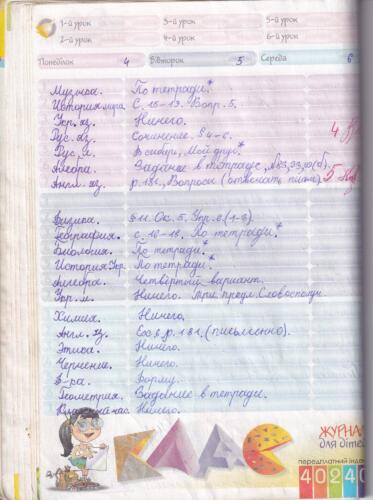 1-й урок 3-й урок 5-й урок
2-й урок 4-й урок 6-й урок
Понеділок 4 Вівторок 5 Середа 6
Музыка. По тетради.*
История мира С. 15-19. Вопр. 5.
Укр. яз. Ничего.
Рус. яз. Сочинение. §4-6.
Рус. л. Мой друг*
Алгебра. Задание в тетраде, №23,
Англ. яз. р. 181, Вопросы (отвечать письм).
Физика. §11. Ок. 5, Упр. 2.(1-8).
География. с. 10-18. По тетради.*
Биология. По тетради.*
История Укр. По тетради.*
Алгебра. Четвёртый вариант.
Укр. л. Ничего.
Химия. Ничего.
Англ. яз. Ex 2, р. 181. (письменно).
Этика. Ничего.
Черчение. Ничего.
Ф-ра. Форму.
Геометрия. Задание в тетраде.
Классный час Ничего.
КЛАС
ЖУРНАЛ
для діте
передплатний інде
4024